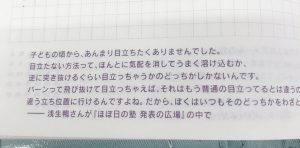 子どもの頃から、あんまり目立ちたくありませんでした。
目立たない方法って、ほんとに気配を消してうまく溶け込むか、
逆に突き抜けるぐらい目立っちゃうかのどっちかしかないんです。
バーンって飛び抜けて目立っちゃえば、それはもう普通の目立ってるとは違うの
違う立ち位置に行けるんですよね。だから、ぼくはいつもそのどっちかをわざと
―― 浅生鴨さんが『ほぼ日の塾 発表の広場』の中で